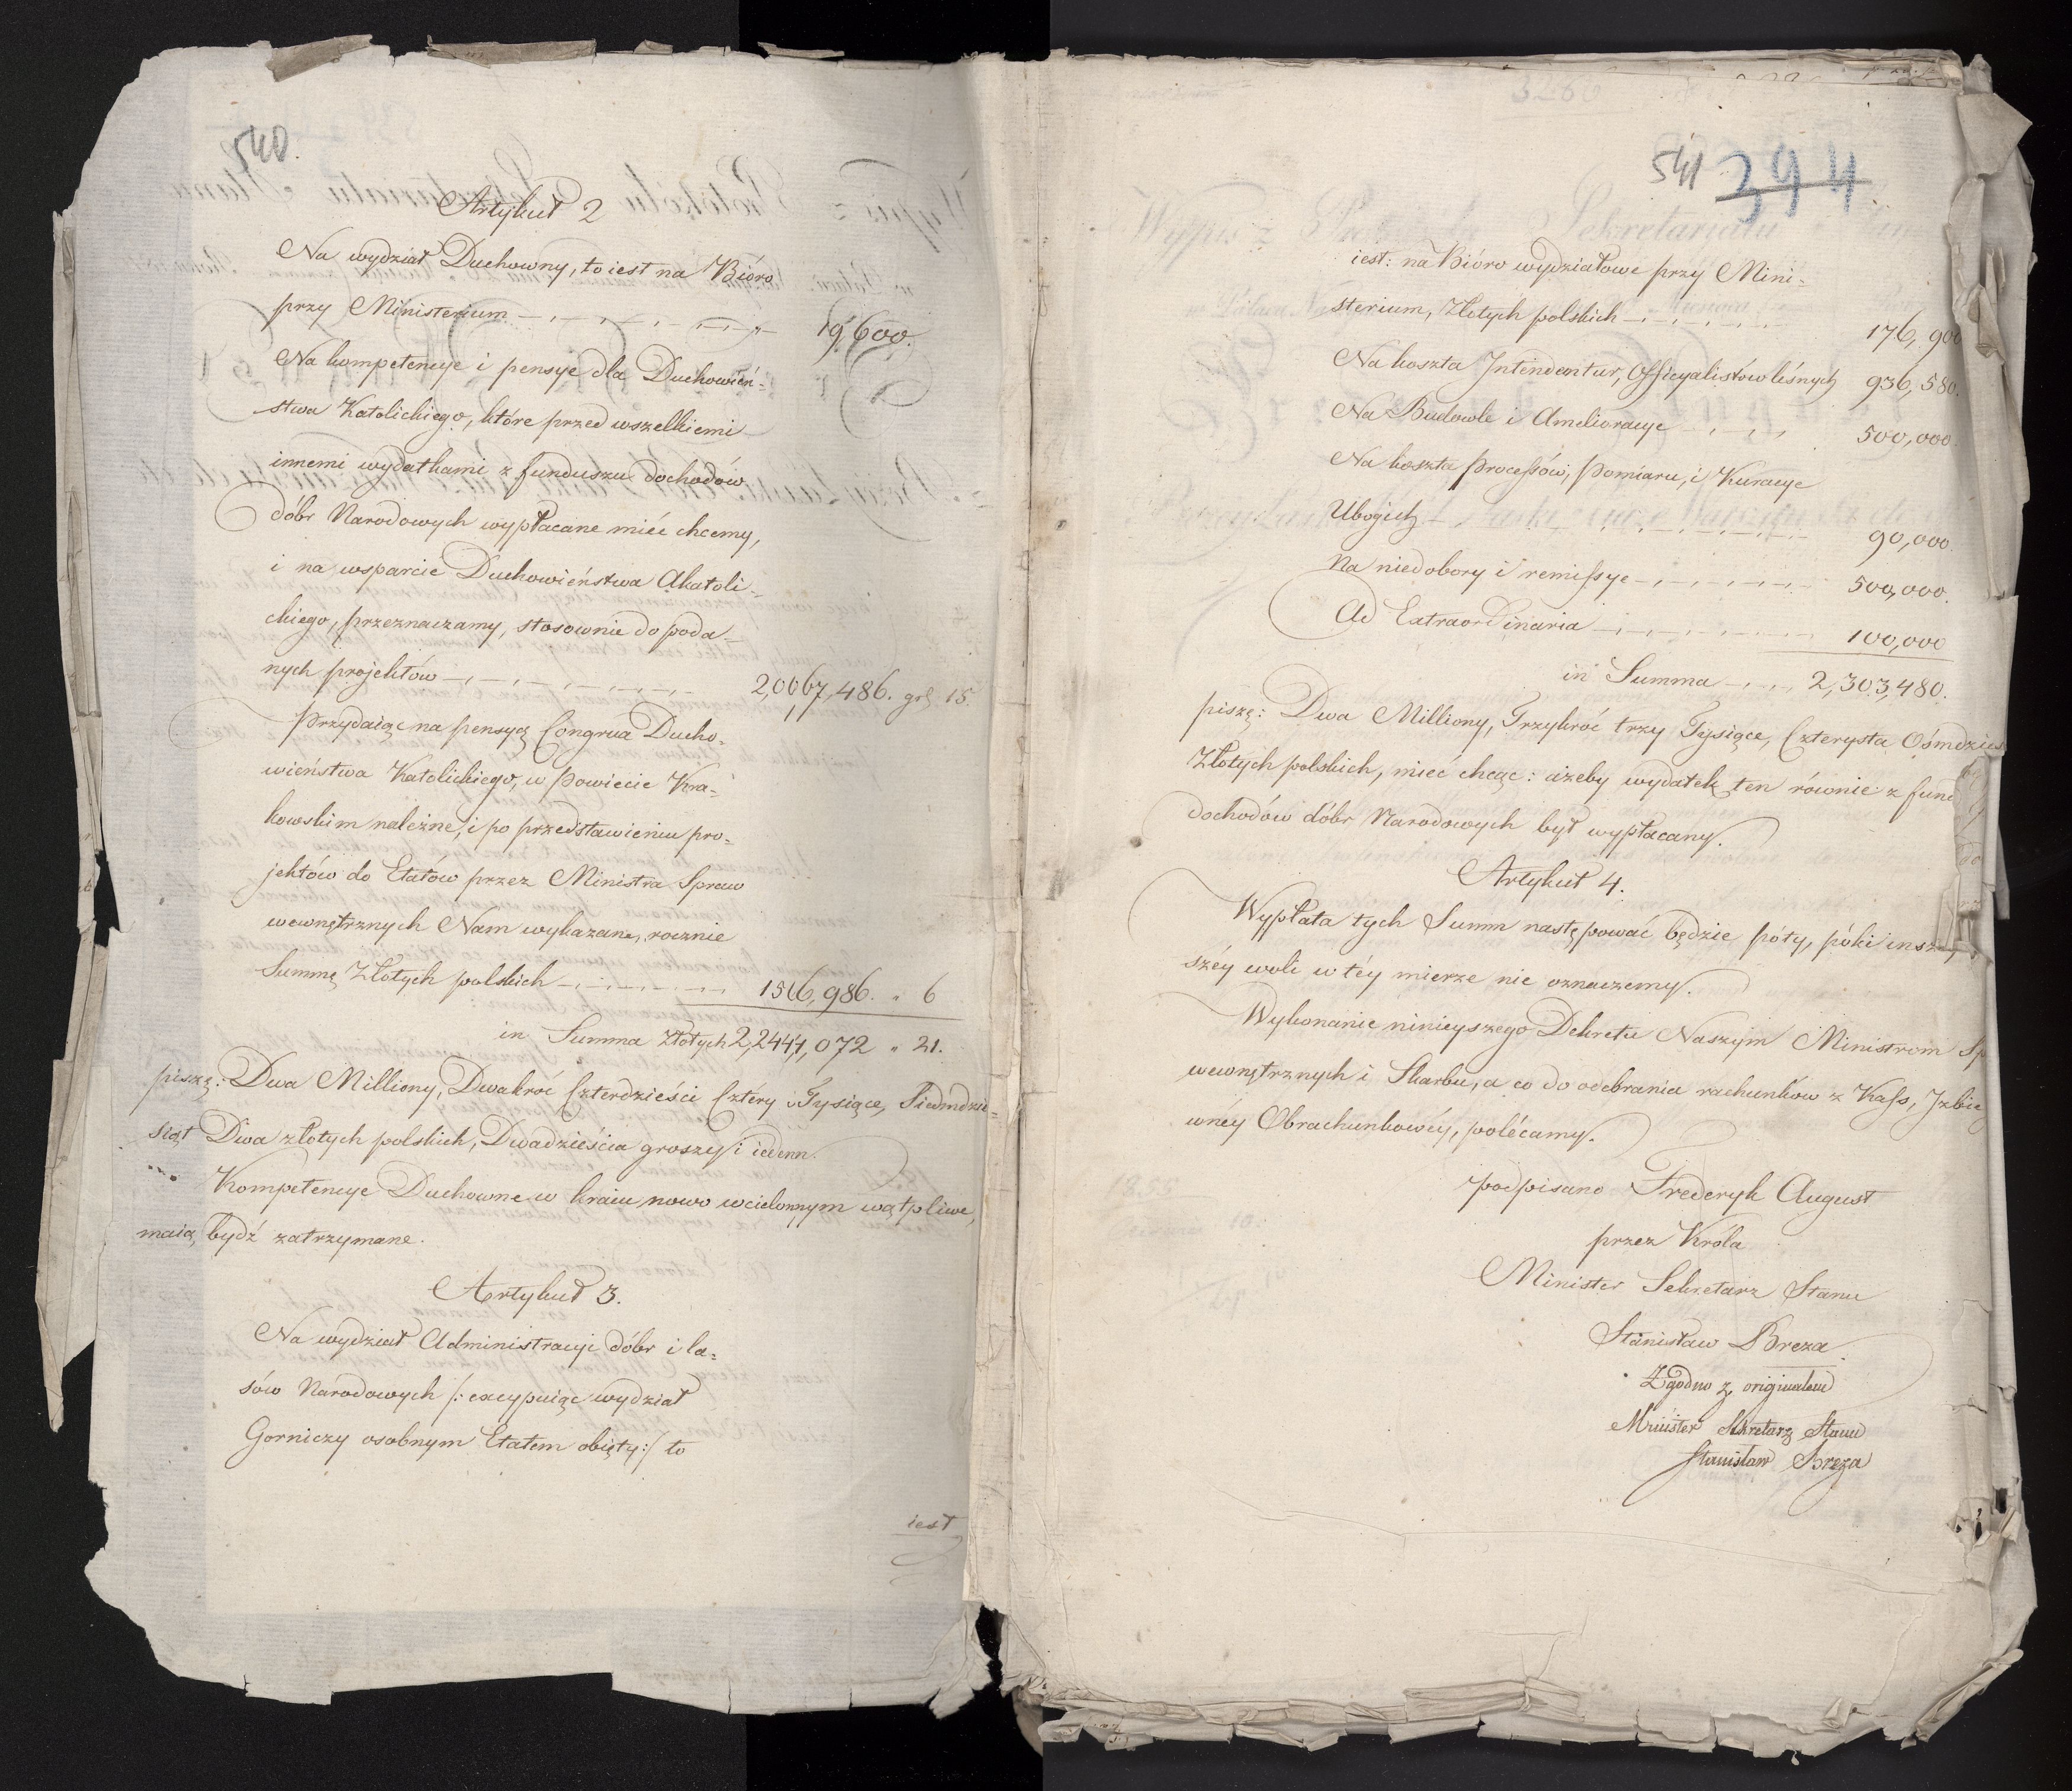 540.
Artykuł 2
Na wydział Duchowny, to iest na Bióro
przy Ministerium 19,600.
Na kompetencye i pensye dla Duchowień=
stwa Katolickiego, które przed wszelkiemi
innemi wydatkami z funduszu dochodów
dóbr Narodowych wypłacane mieć chcemy,
i na wsparcie Duchowieństwa Akatoli=
ckiego, przeznaczamy, stosownie do poda=
nych projektów 2,067,486. gr. 15.
Przydaiąc na pensyą Congrua Ducho=
wieństwa Katolickiego, w Powiecie Kra=
kowskim należne, i po przedstawieniu pro=
jektów do Etatów przez Ministra Spraw
wewnętrznych Nam wykazane, rocznie
Summę Złotych polskich 156,986. " 6
in Summa Złotych 2,244,072 " 21.
piszę: Dwa Milliony, Dwakroć Czterdzieści Cztéry Tysiące, Siedmdzie=
siąt Dwa złotych polskich, Dwadzieścia groszy i ieden.
Kompetencye Duchowne w kraiu nowo wcielonym wątpliwe,
maią bydź zatrzymane.
Artykuł 3.
Na wydział Administracyi dóbr i la=
sów Narodowych /: excypuiąc wydział
Gorniczy osobnym Etatem obięty :/ to
iest
541 394
iest: na Bióro wydziałowe przy Mini=
sterium, Złotych polskich 176,900
Na koszta Intendentur, Officyalistów leśnych 936,580.
Na Budowle i Amelioracye 500,000
Na koszta processów, pomiaru, i Kuracye
Ubogich 90,000.
Na niedobory i remissye 500,000.
Ad Extraordinaria 100,000
in Summa 2,303,480.
piszę: Dwa Milliony, Trzykroć trzy Tysiące, Czterysta Ośmdzies
Złotych polskich, mieć chcąc: ażeby wydatek ten równie z fund
dochodów dóbr Narodowych był wypłacany.
Artykuł 4.
Wypłata tych Summ następować będzie póty, póki insz
széy woli w téy mierze nie oznaczemy.
Wykonanie ninieyszego Dekretu Naszym Ministrom Sp
wewnętrznych i Skarbu, a co do odebrania rachunków z Kass, Izbie
wnéy Obrachunkowéy, polécamy.
podpisano Frederyk August
przez Króla
Minister Sekretarz Stanu
Stanisław Breza
Zgodno z originałem
Minister Sekretarz Stanu
Stanisław Breza